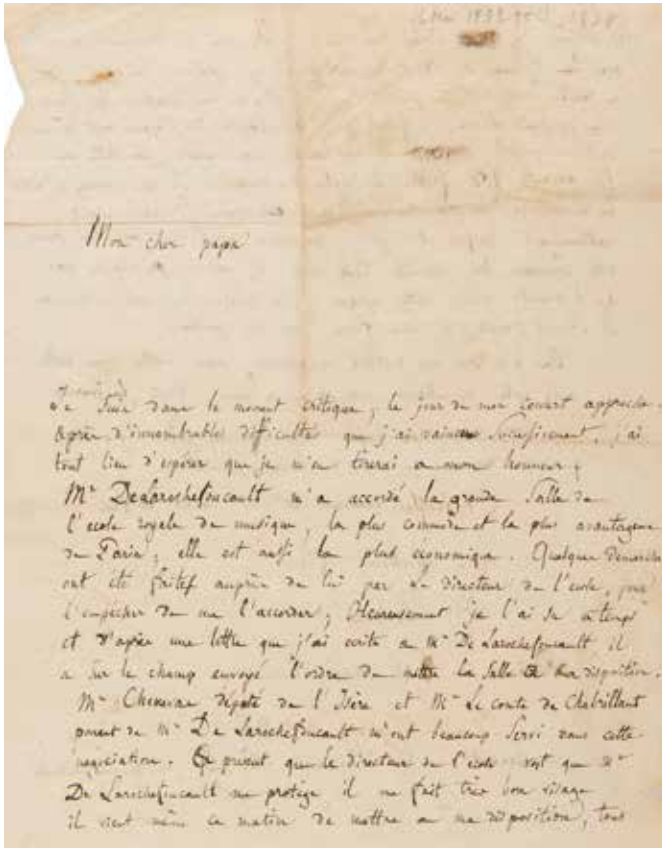 Mon cher papa
Je suis dans le moment critique, le jour de mon concert approche.
après d'innombrables difficultés que j'ai vaincu successivement, j'ai
tout lieu d'espérer que je m'en tirerai a mon honneur;
Mr Delarochefoucault m'a accordé la grande salle de
l'école royale de musique, la plus commode et la plus avantageuse
de Paris; elle est aussi la plus économique. Quelques démarches
ont été faites auprès de lui par le directeur de l'école, pour
l'empêcher de me l'accorder; Heureusement je l'ai su a temps
et d'après une lettre que j'ai écrite a Mr De Larochefoucault il
a sur le champ envoyé l'ordre de mettre la salle a ma disposition.
Mr député de l'Isère et Mr Le comte de Chabrillant
parent de Mr De Larochefoucault m'ont beaucoup servi dans cette
négociation. a présent que le directeur de l'école voit que Mr
De Larochefoucault me protège il me fait très bon visage
il vient même ce matin de mettre a ma disposition, tous